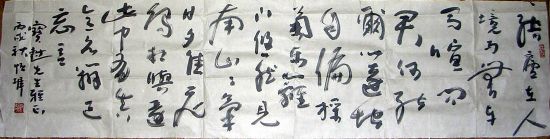 結廬在人
境而無車
馬喧問
君何能
爾心遠地
自偏採
菊東籬
下悠然見
南山山氣
日夕佳飛
鳥相與還
此中有真
意欲辨已
忘言
先生雅正
丙戌秋